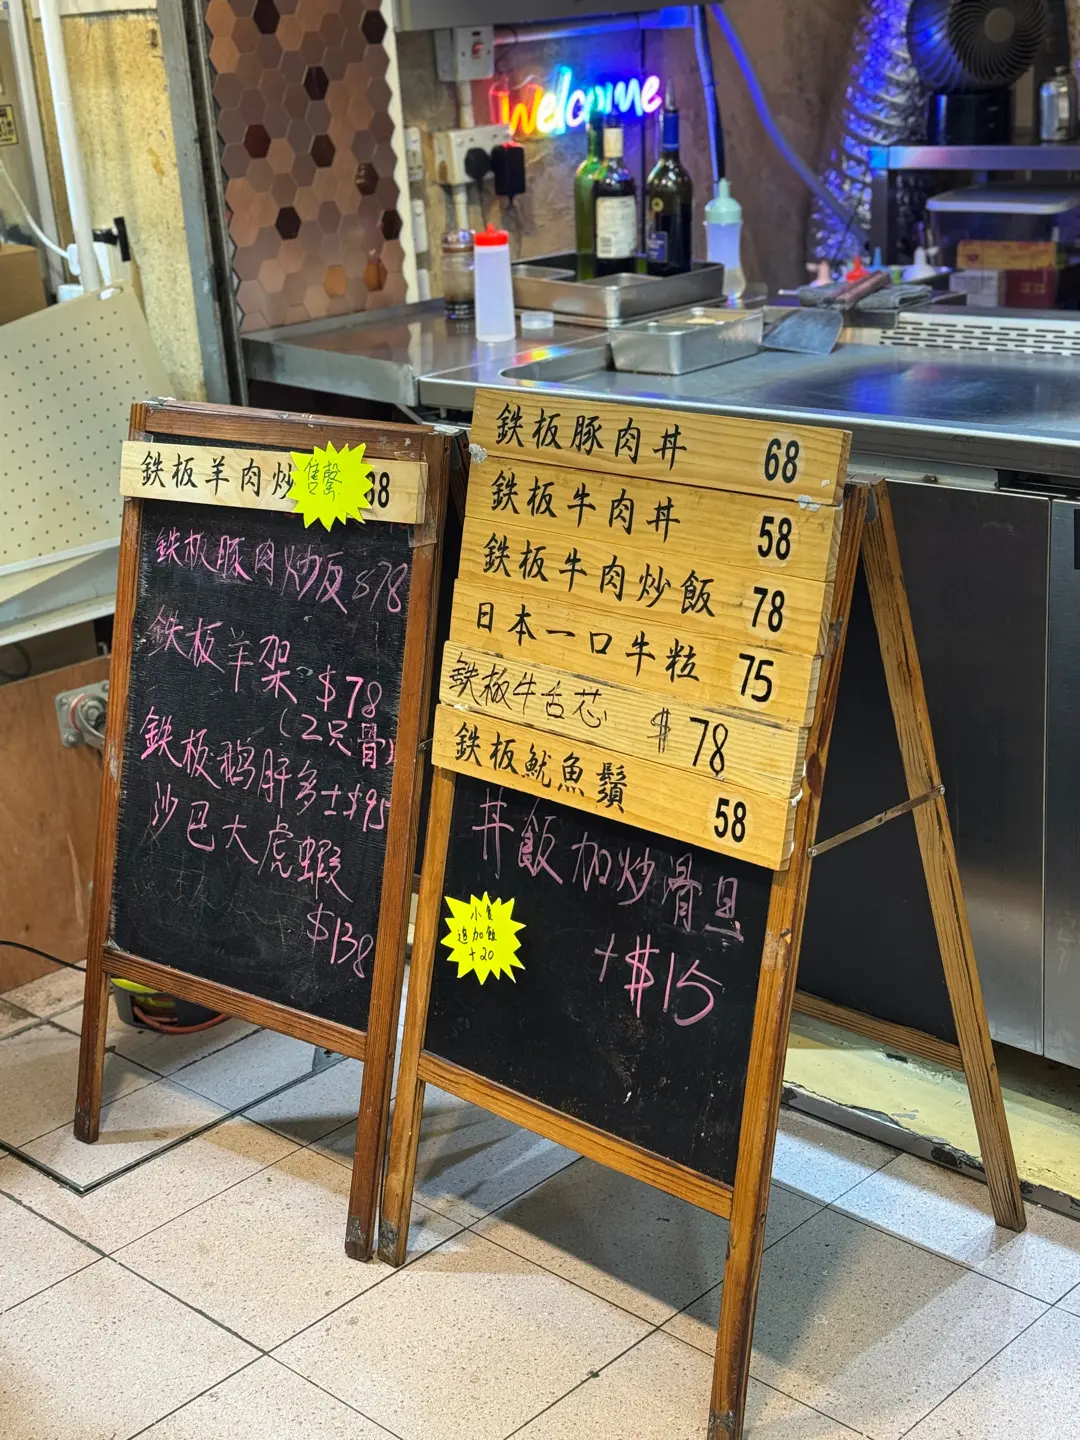 Welcome
鉄板羊肉炒 68
售罄
鉄板豚肉炒反 $78
鉄板羊架 $78
(2只骨)
鉄板鵝肝多士$95
沙巴大虎蝦
$138
鉄板豚肉丼 68
鉄板牛肉丼 58
鉄板牛肉炒飯 78
日本一口牛粒 75
鉄板牛舌芯 $78
鉄板魷魚鬚 58
丼飯加炒滑旦
+$15
小食
追加飯
+20